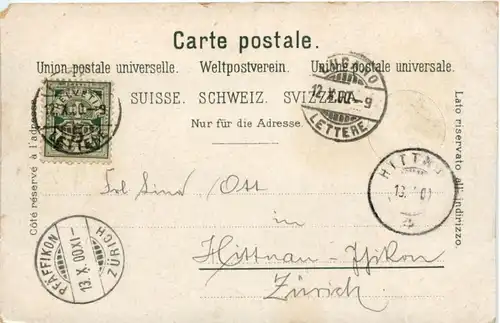 Carte postale.
Union postale universelle. Weltpostverein. Unione postale universale.
SUISSE. SCHWEIZ. SVIZZERA.
Nur für die Adresse.
Côté réservé à l'adresse.
Lato riservato all'indirizzo.
LETTERE
12.X.00-9
LETTERE
HITTNAU
PFÄFFIKON
13.X.00XI-
ZÜRICH
Ott
in
Hittnau-Pfikon
Zürich